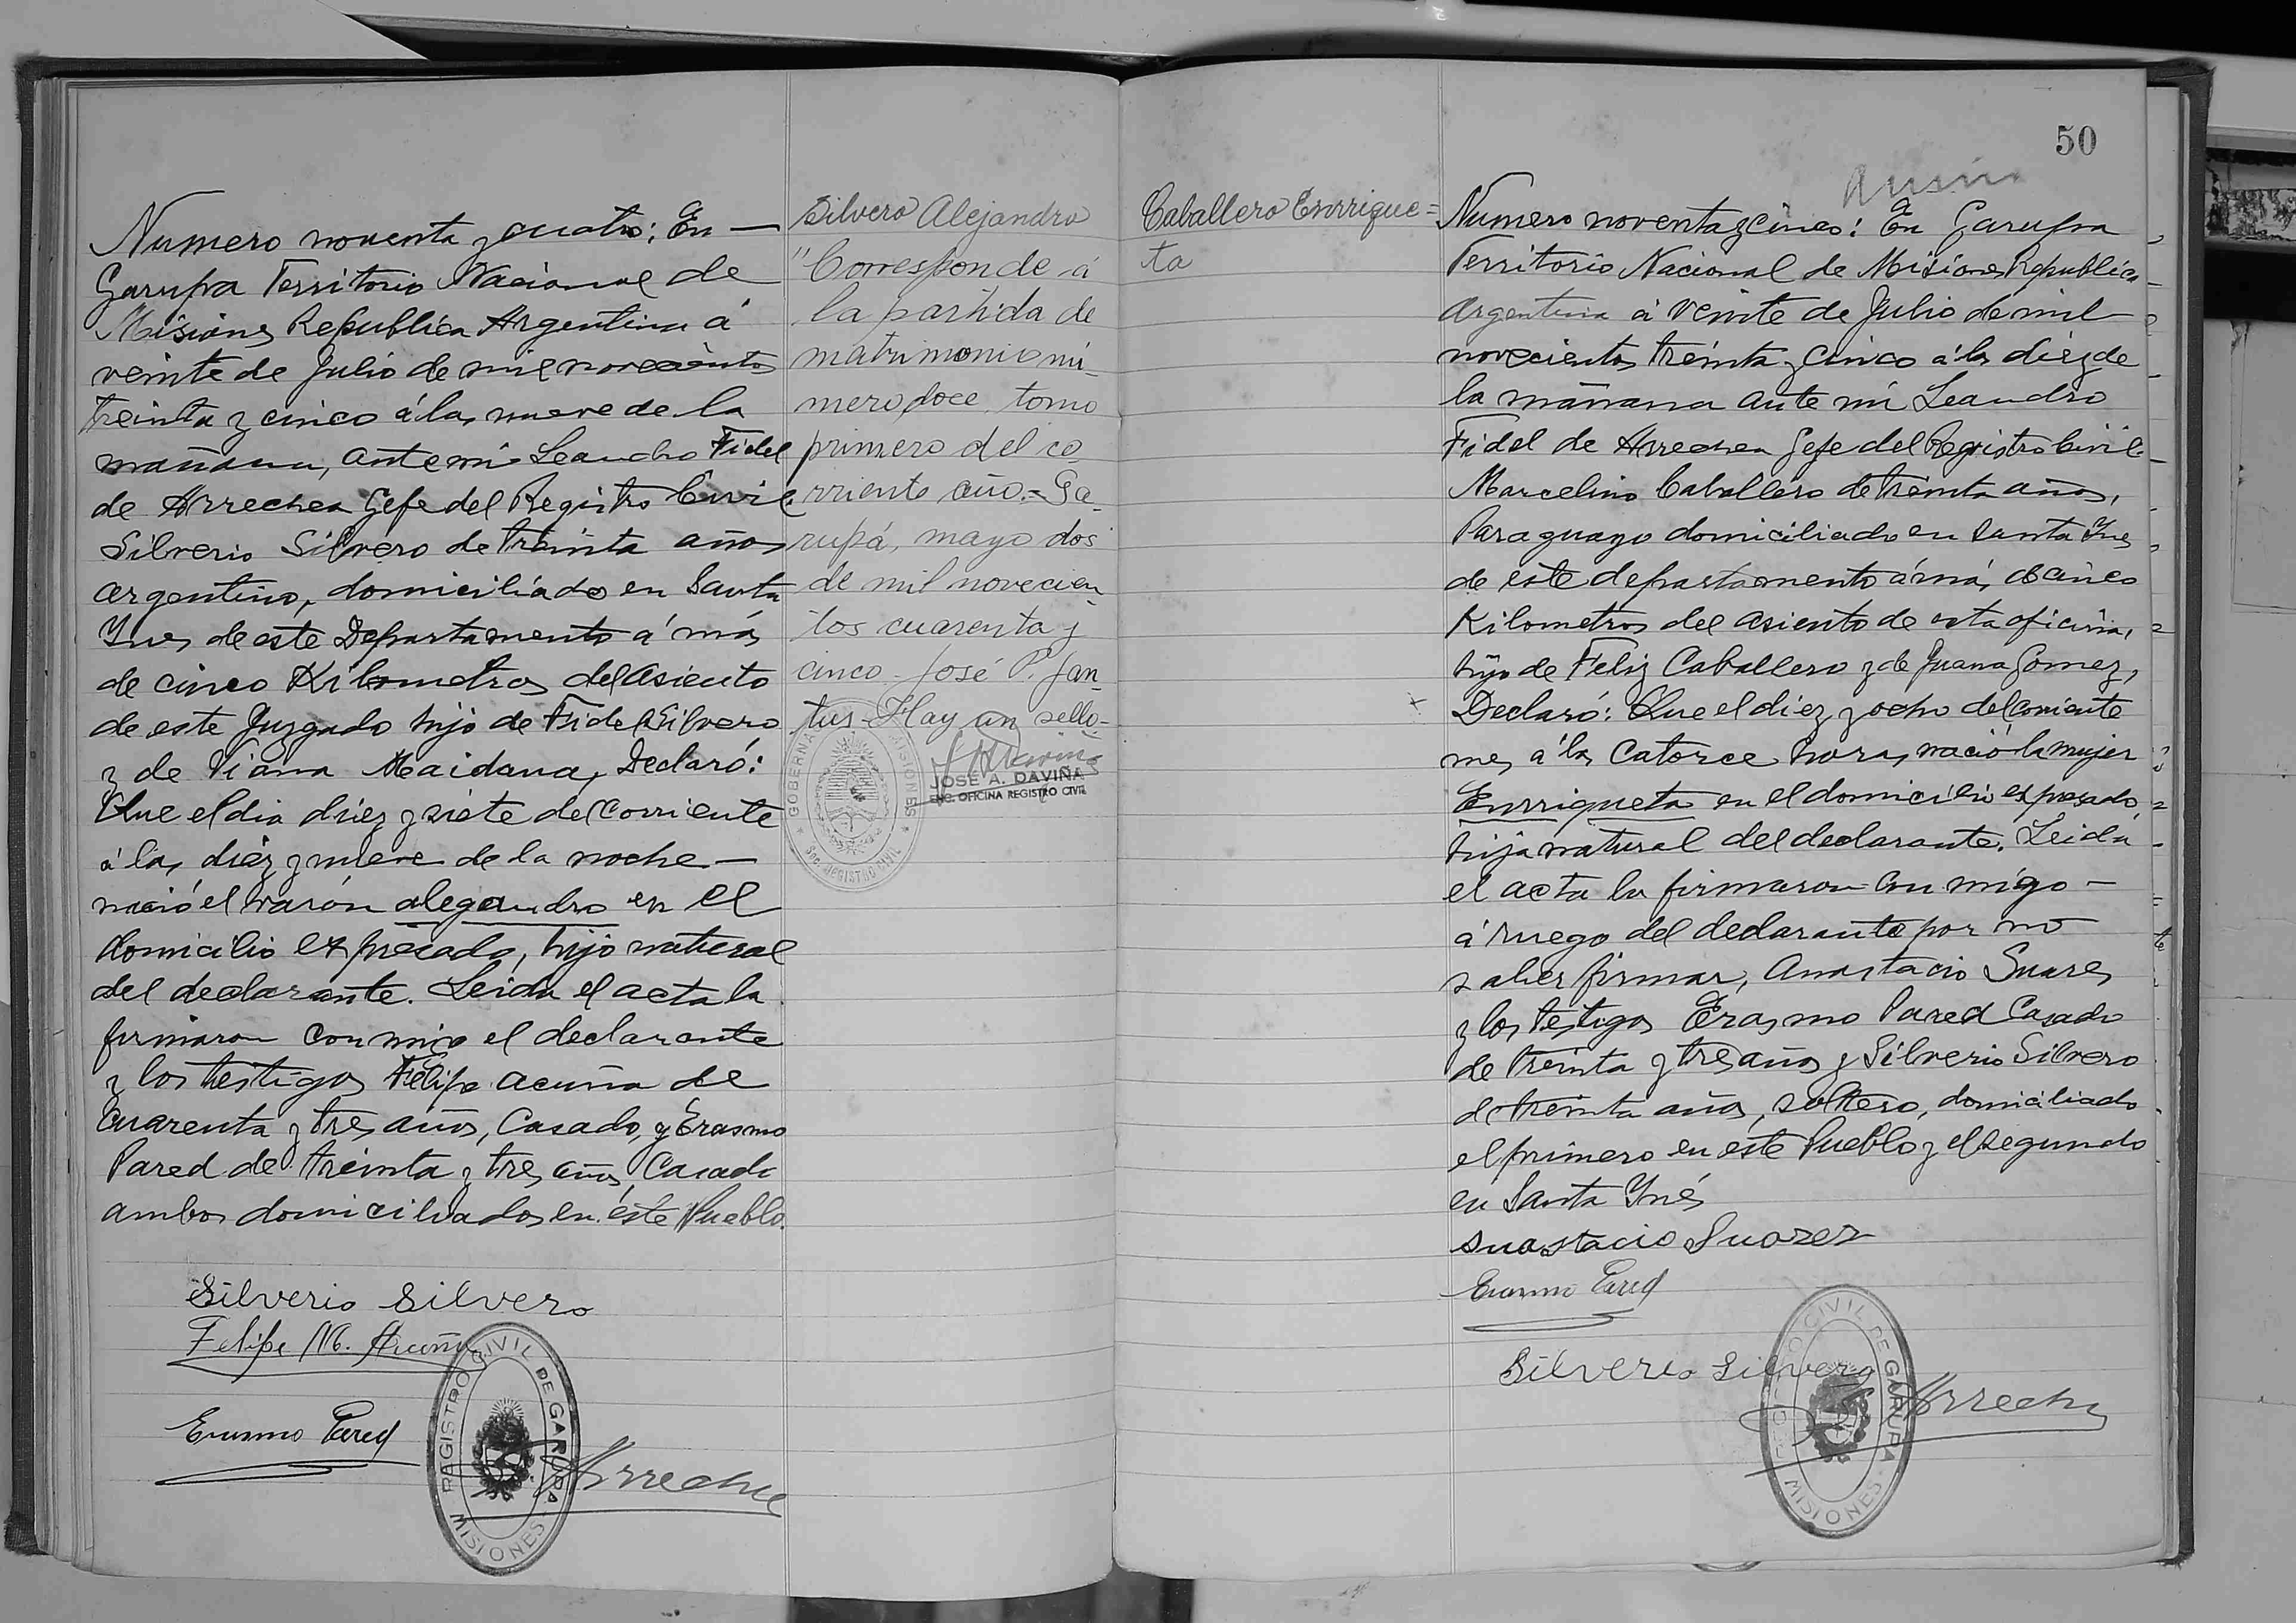 Numero noventa y cuatro: En —
Garupa Territorio Nacional de
Misiones Republica Argentina á
veinte de Julio de mil novecientos
treinta y cinco á las nueve de la
mañana, ante mi Leandro Fidel
de Arrechea Gefe del Registro Civil.
Silverio Silvero de treinta años
argentino, domiciliado en Santa
Ynes de este Departamento á más
de cinco Kilometros del asiento
de este Juzgado hijo de Fidel Silvero
y de Viana Maidana, Declaró:
Que el dia diez y siete del corriente
á las diez y nueve de la noche —
nació el varón alegandro en el
domicilio expresado, hijo natural
del declarante. Leida el acta la
firmaron con migo el declarante
y los testigos Felipe acuña de
cuarenta y tres años, Casado, y Erasmo
Pared de treinta y tres años Casado
ambos domiciliados en este Pueblo.
Silverio Silvero
Felipe M. Acuña
Erasmo Pared
Arrechea
REGISTRO CIVIL DE GARUPA
MISIONES
Silvero Alejandro
"Corresponde á
la partida de
matrimonio nú-
mero doce, tomo
primero del co
rriente año.- Ga-
rupá, mayo dos
de mil novecien-
tos cuarenta y
cinco - José P. Jan-
tus - Hay un sello-
JOSÉ A. DAVIÑA
ENC. OFICINA REGISTRO CIVIL
REGISTRO CIVIL
Caballero Enrrique=
ta
50
Numero noventa y cinco: En Garupa
Territorio Nacional de Misiones Republica
Argentina á veinte de Julio de mil
novecientos treinta y cinco á las diez de
la mañana ante mi Leandro
Fidel de Arrechea Gefe del Registro Civil.
Marcelino Caballero de treinta años,
Paraguayo domiciliado en Santa Ynes
de este departamento á más de cinco
Kilometros del asiento de esta oficina,
hijo de Feliz Caballero y de Juana Gomez,
Declaró: Que el diez y ocho del corriente
mes á las catorce horas nació la mujer
Enrriqueta en el domicilio expresado,
hija natural del declarante. Leida
el acta la firmaron con migo —
á ruego del declarante por no
saber firmar, Anastacio Suares
y los testigos Erasmo Pared Casado
de treinta y tres años y Silverio Silvero
de treinta años, soltero, domiciliado
el primero en este Pueblo y el segundo
en Santa Ynés
Anastacio Suarez
Erasmo Pared
Silverio Silvero
Arrechea
CIVIL DE GARUPA
MISIONES